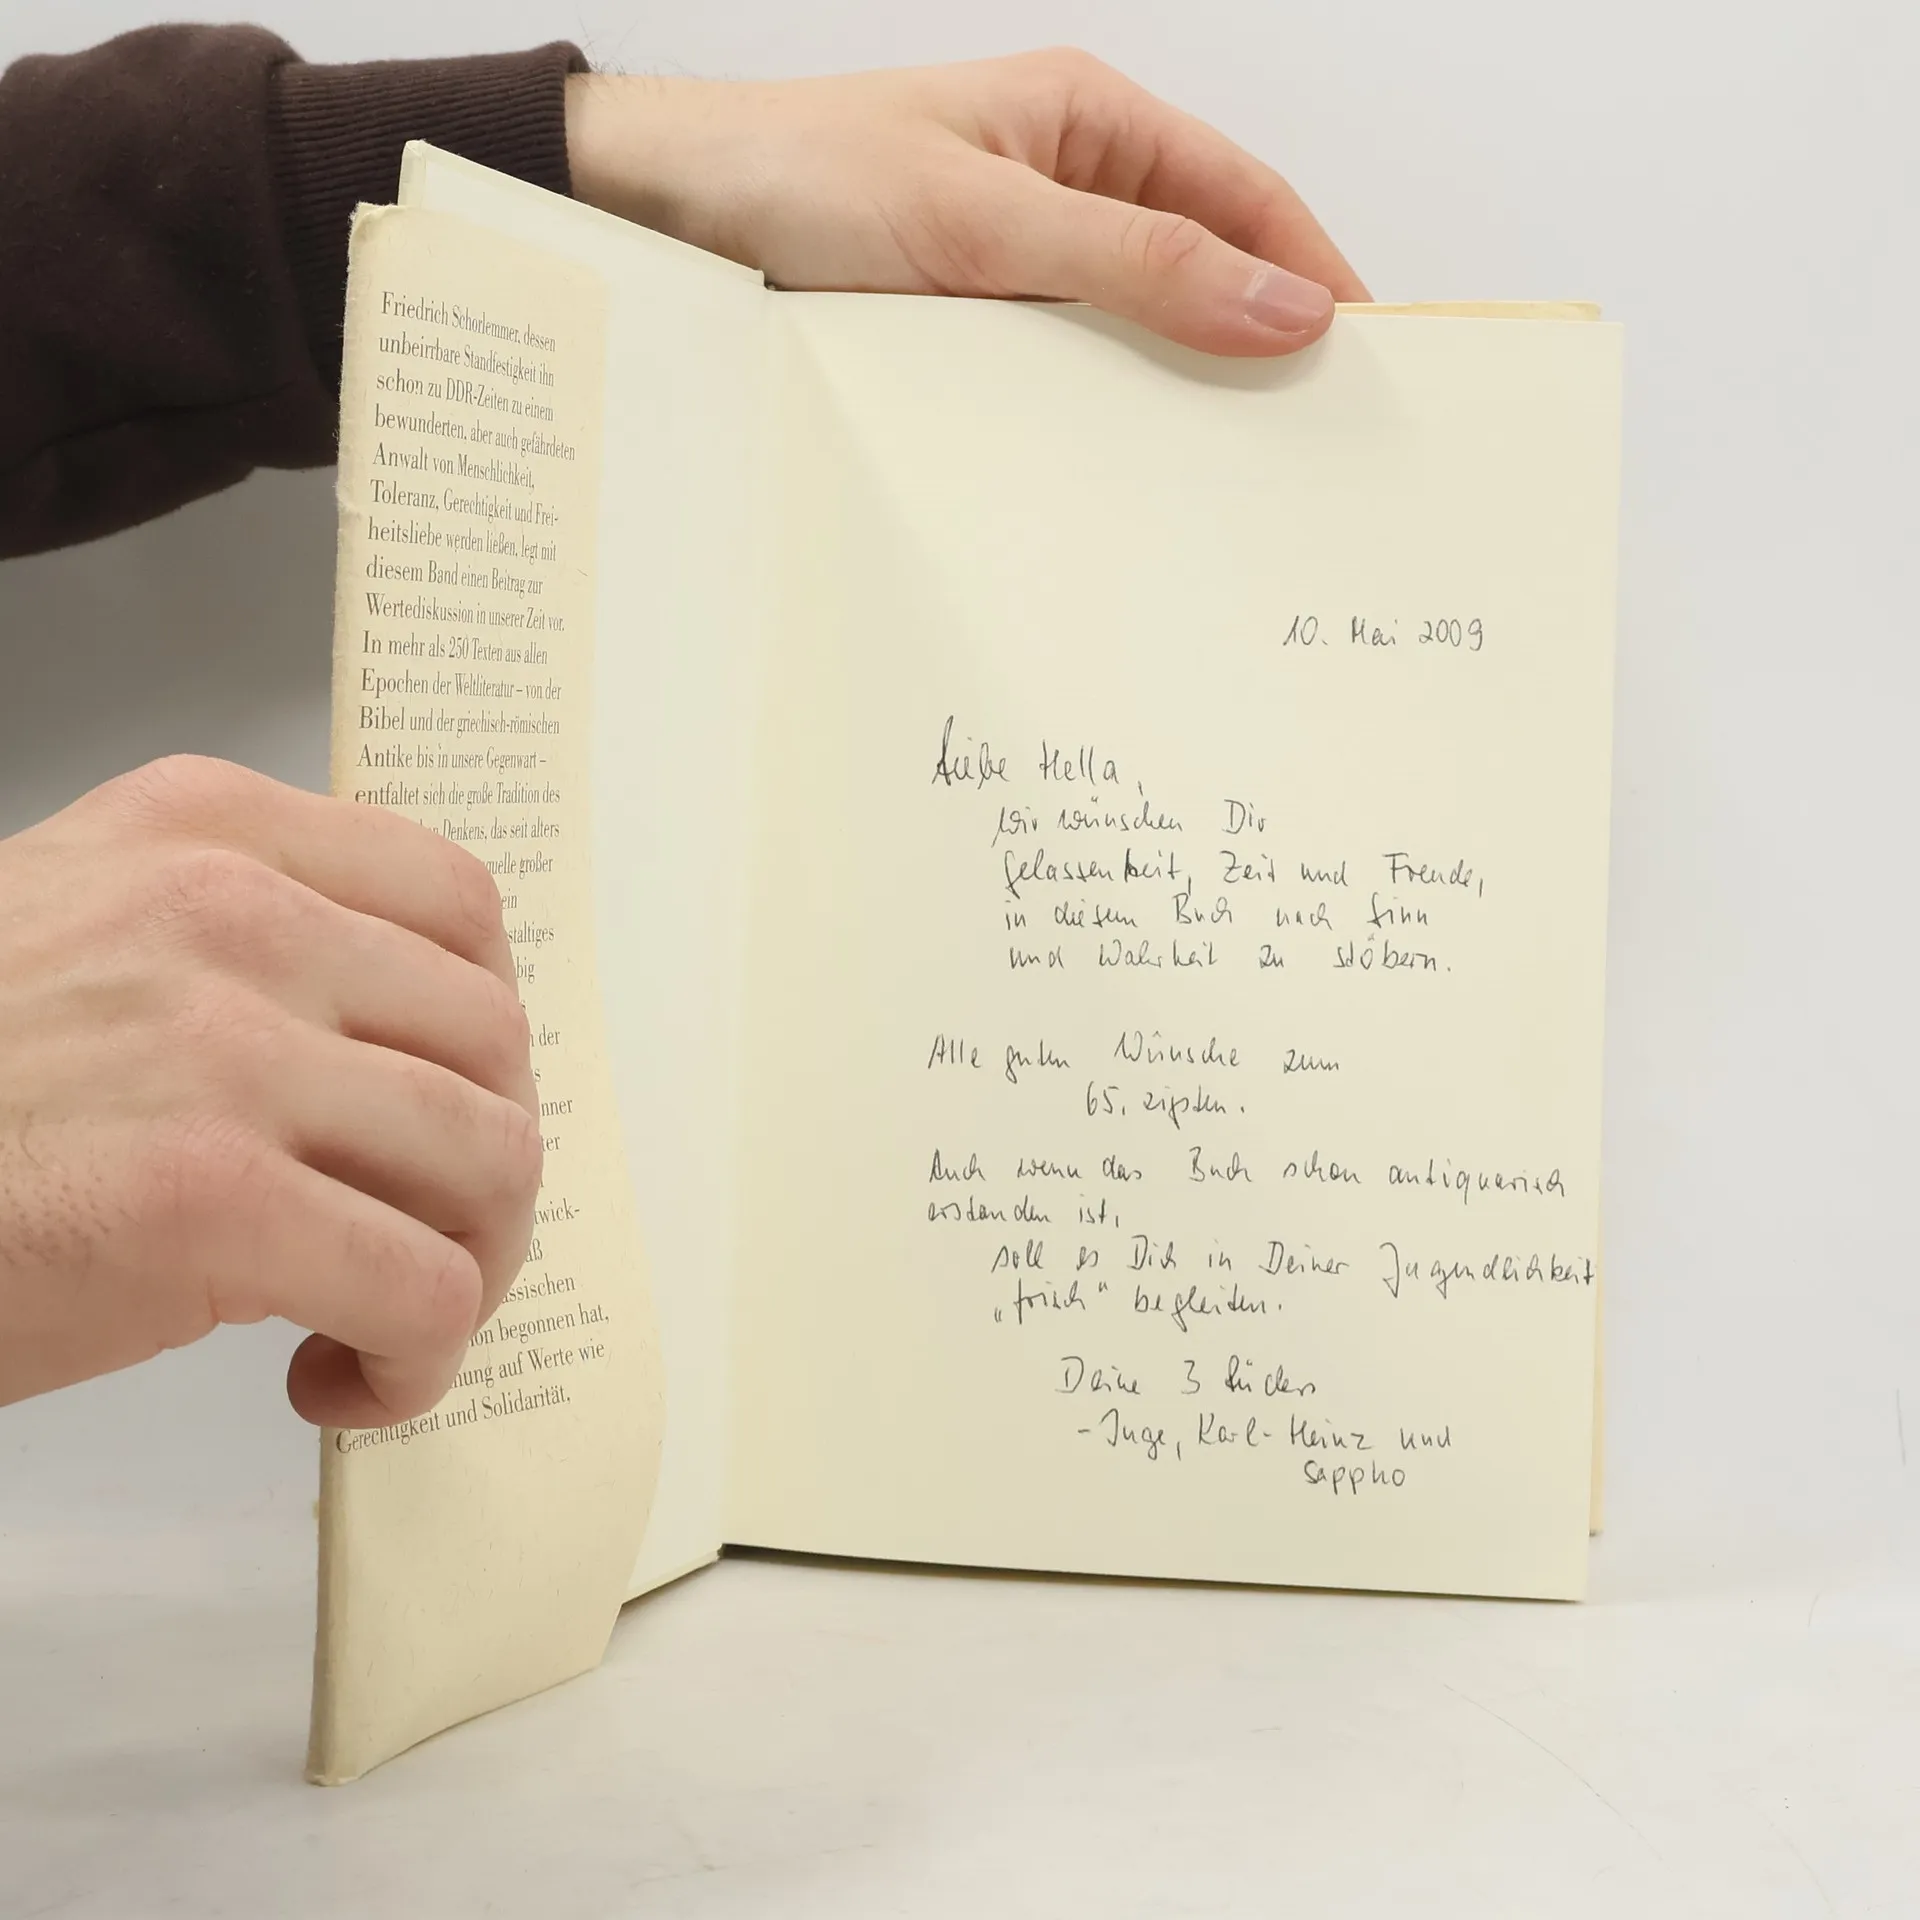 Friedrich Schorlemmer, dessen
unbeirrbare Standfestigkeit ihn
schon zu DDR-Zeiten zu einem
bewunderten, aber auch gefährdeten
Anwalt von Menschlichkeit,
Toleranz, Gerechtigkeit und Frei-
heitsliebe werden ließen, legt mit
diesem Band einen Beitrag zur
Wertediskussion in unserer Zeit vor.
In mehr als 250 Texten aus allen
Epochen der Weltliteratur – von der
Bibel und der griechisch-römischen
Antike bis in unsere Gegenwart –
entfaltet sich die große Tradition des
Denkens, das seit alters
quelle großer
ein
der
begonnen hat,
auf Werte wie
Gerechtigkeit und Solidarität,
10. Mai 2009
Liebe Hella,
wir wünschen Dir
Gelassenheit, Zeit und Freude,
in diesem Buch nach Sinn
und Wahrheit zu stöbern.
Alle guten Wünsche zum
65. zigsten.
Auch wenn das Buch schon antiquarisch
erstanden ist,
soll es Dich in Deiner Jugendlichkeit
„frisch“ begleiten.
Deine 3
- Inge, Karl-Heinz und
Sappho